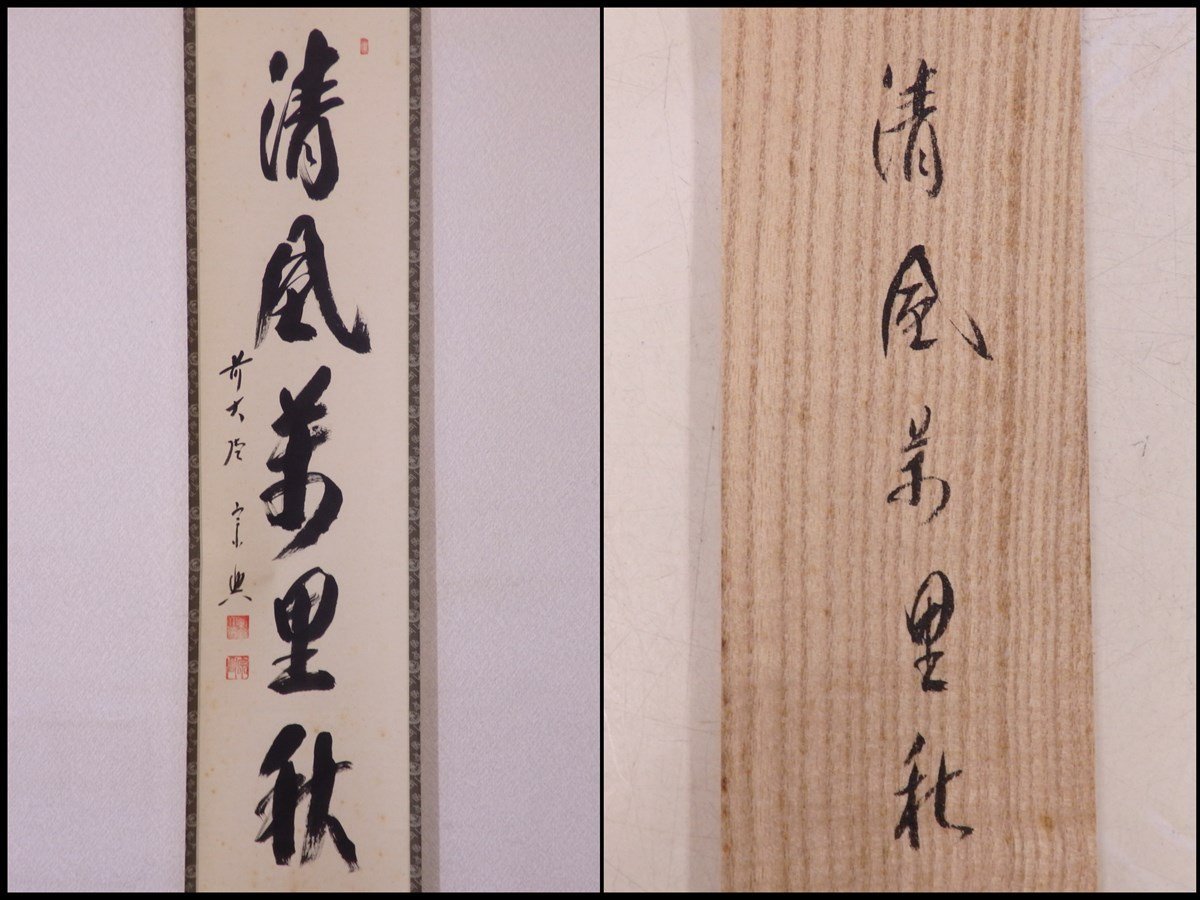 清風萬里秋
前大徳 宗興
清風萬里秋